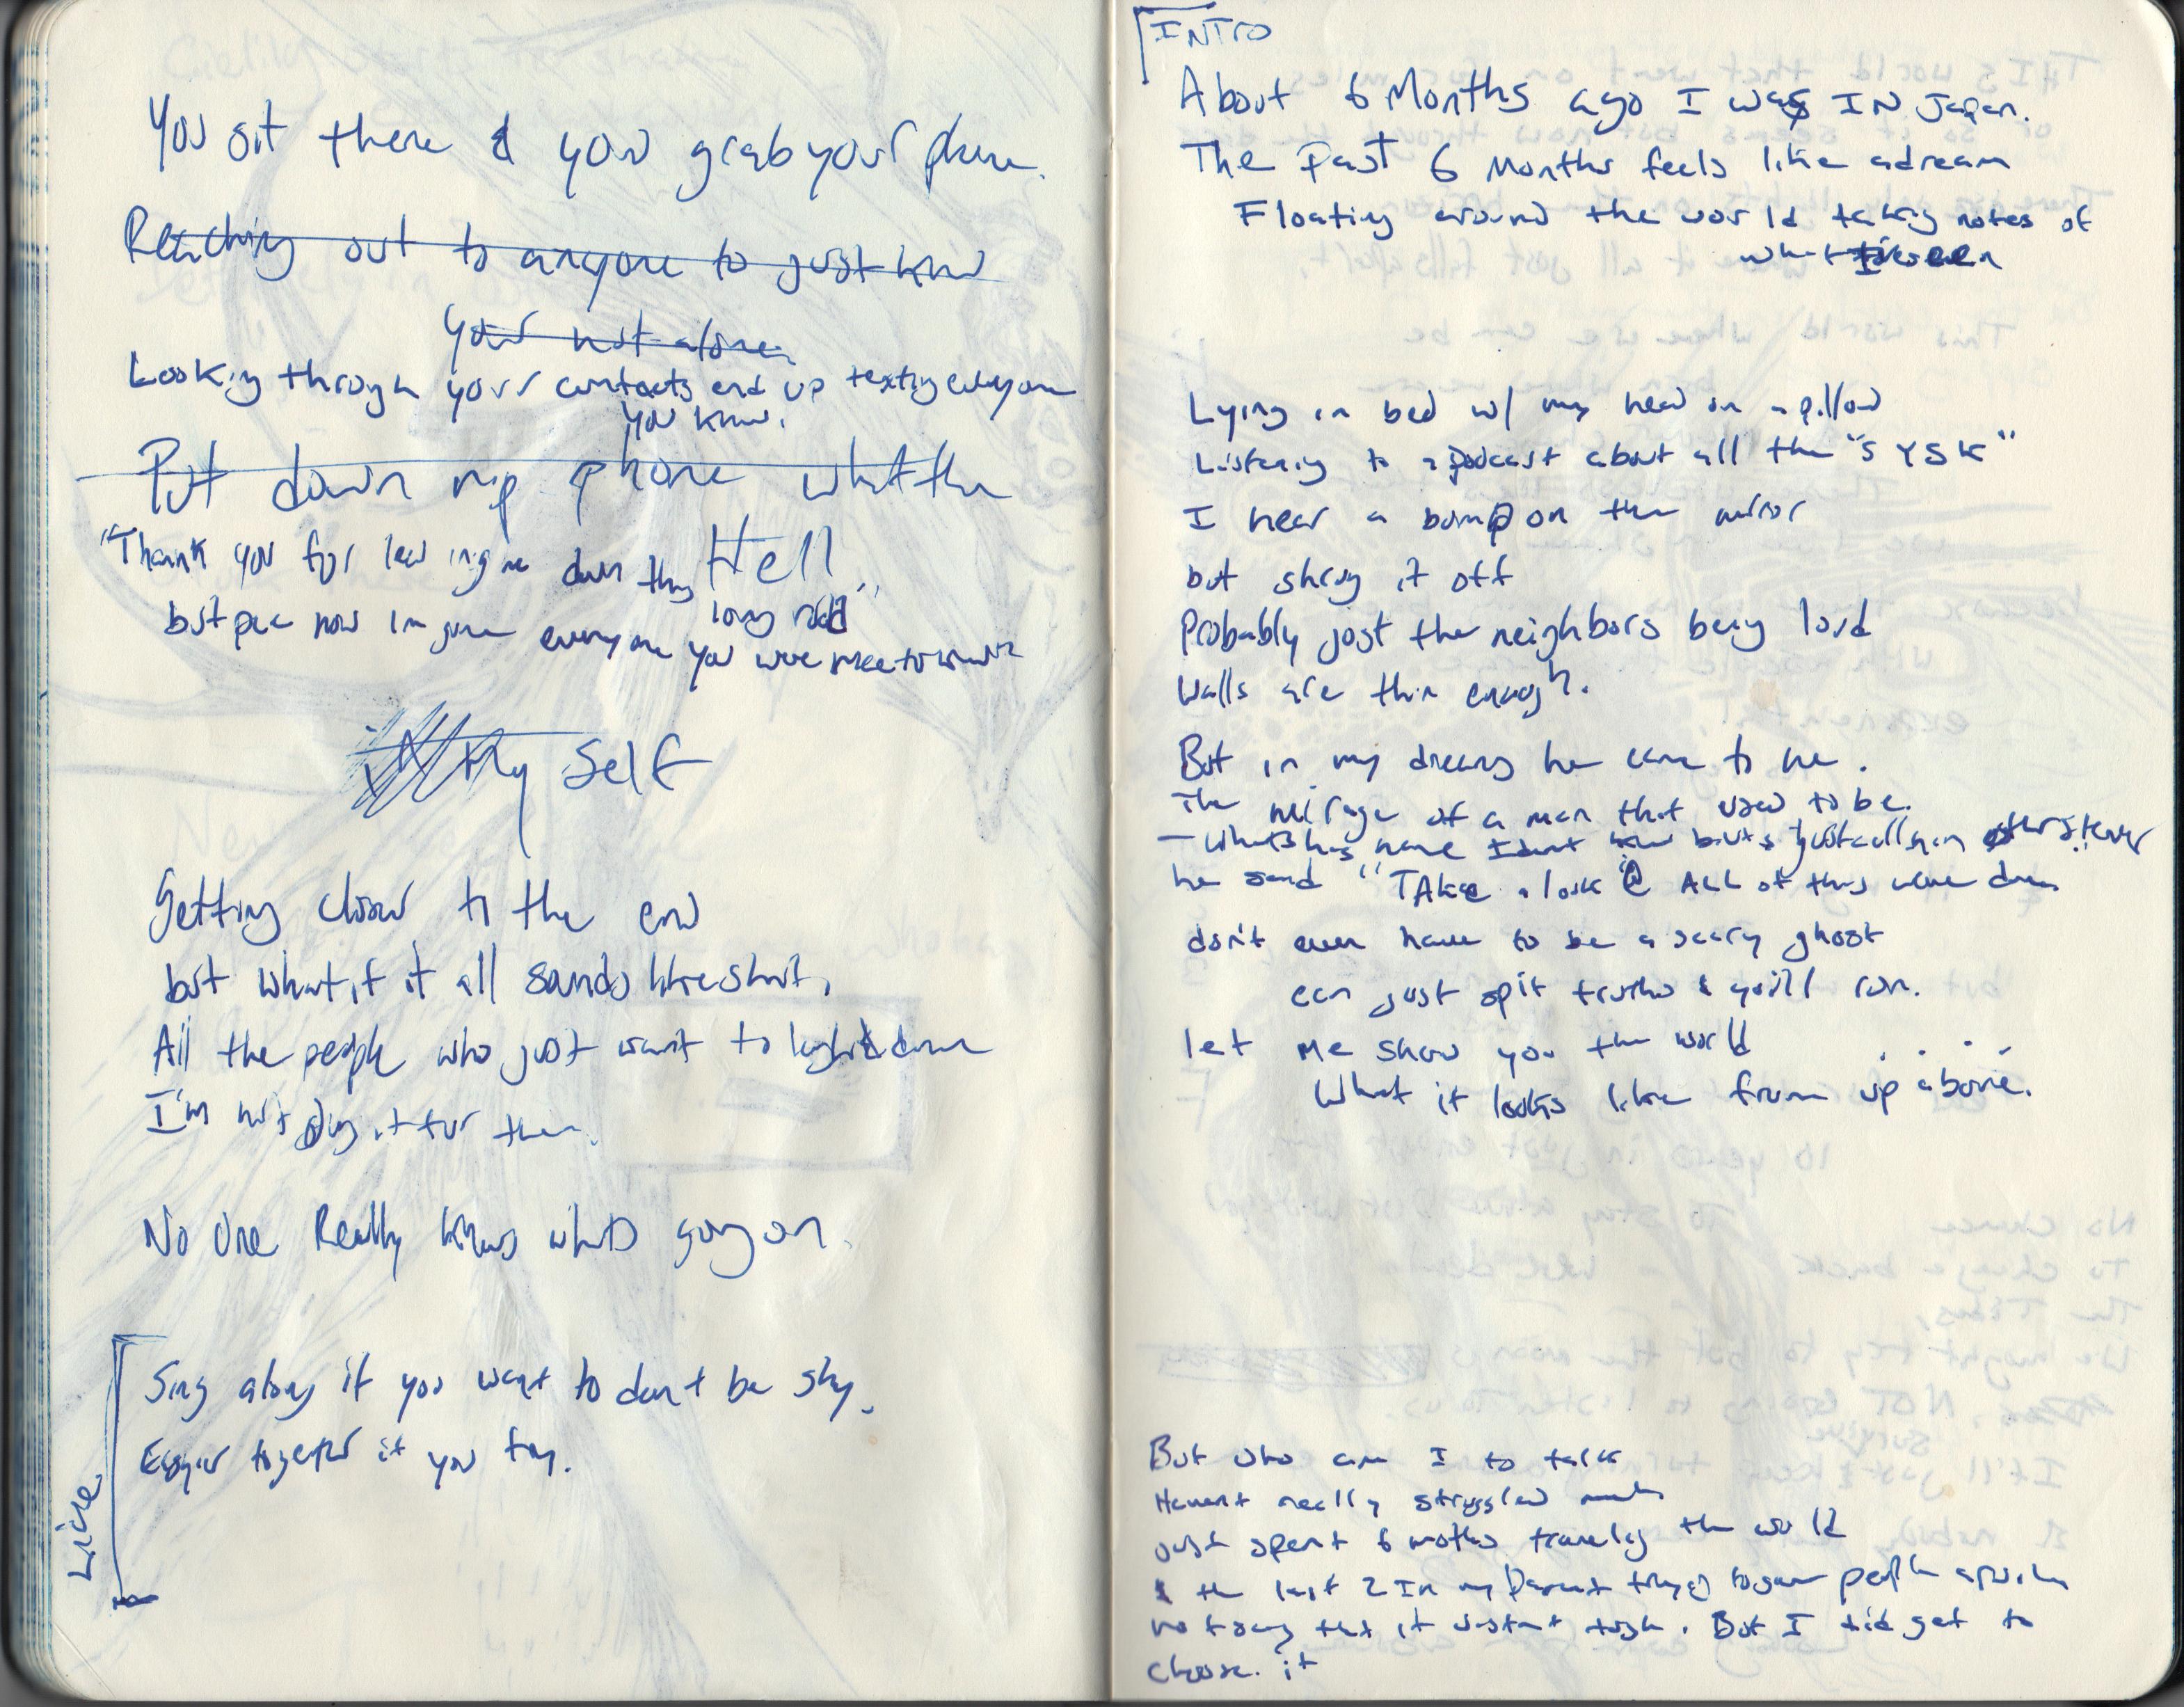 You sit there & you grab your phone.
Reaching out to anyone to just know
your not alone.
Looking through your contacts end up texting everyone
you know.
Put down my phone what the
Hell
"Thank you for leading me down this
long road"
but now everyone you were
My Self
Getting closer to the end
but what if it all sounds like shit.
All the people who just want to down
I'm not doing it for them.
No One Really knows whats going on.
Live
Sing along if you want to don't be shy.
Easier together if you try.
INTRO
About 6 Months ago I was IN Japan.
The Past 6 Months feels like a dream
Floating around the world taking notes of
what
Lying in bed w/ my head on a pillow
Listening to a podcast about all the "SYSK"
I hear a bump on the mirror
but shrug it off
Probably just the neighbors being loud
walls are thin enough.
But in my dreams he came to me.
The mirage of a man that used to be.
- Whats his name I dont know but just call him
he said "TAke a look @ ALL of this weve done
don't even have to be a scary ghost
can just spit truths & you'll run.
let me show you the world
What it looks like from up above.
But who am I to talk
Havent really struggled much
just spent 6 moths traveling the world
& the last 2 In my trying to people
not saying that it wasnt tough. But I did get to
choose it